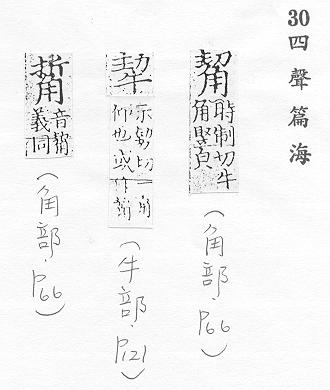 30 四聲篇海
觢
時制切牛
角竪皃
(角部.P66)
示勢切一角
仰也或作觢
(牛部.P121)
音觢
義同
(角部.P66)